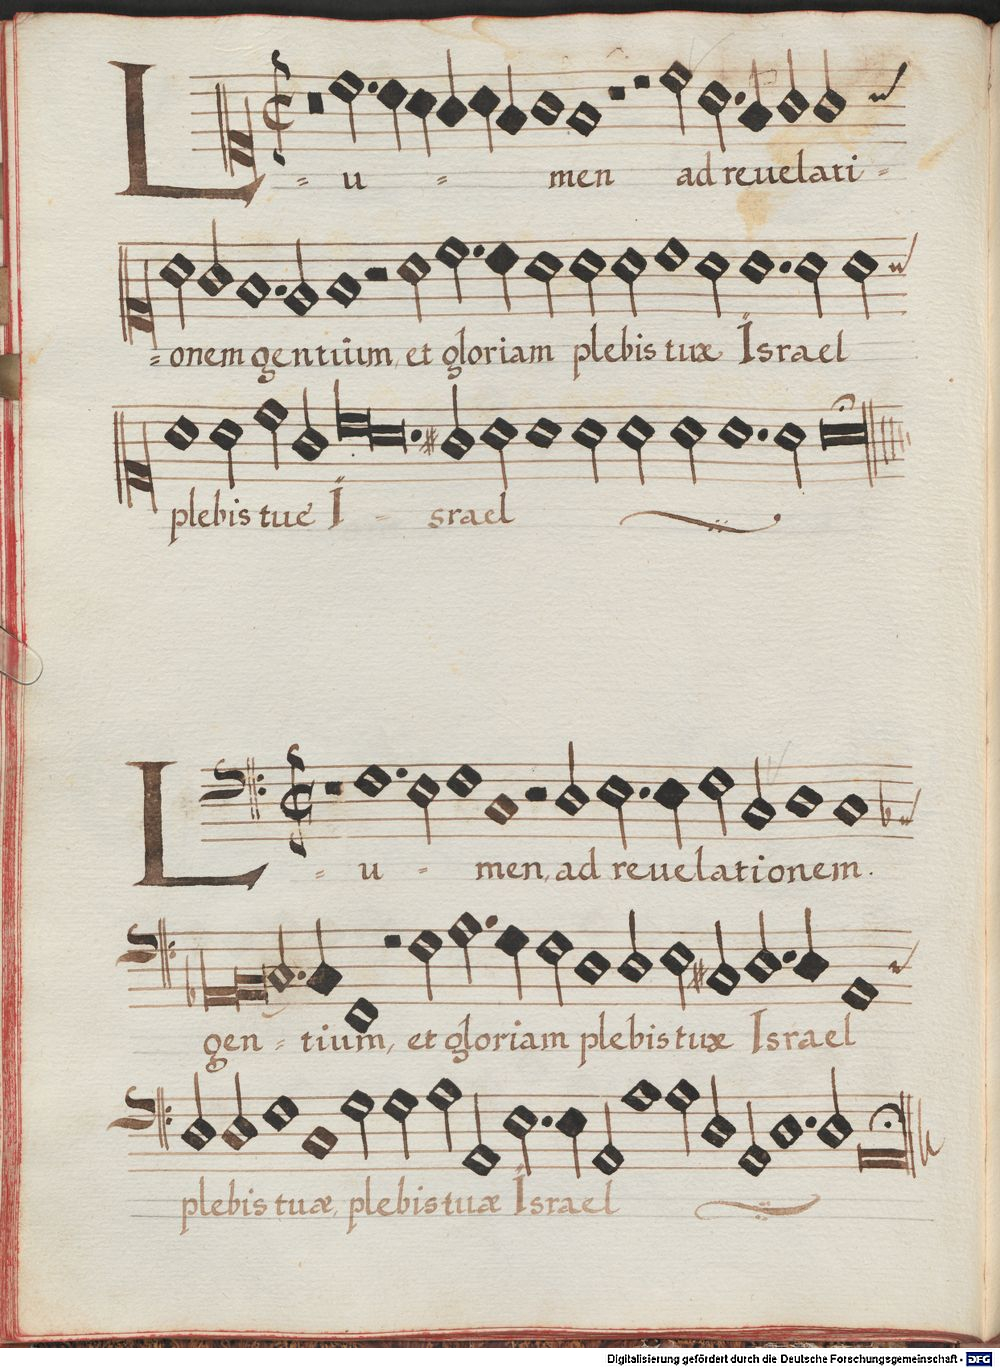 L = u = men ad reuelati =
= onem gentiũm, et gloriam plebis tuæ Israel
plebis tuæ I = srael
L = u = men, ad reuelationem.
gen = tium, et gloriam plebis tuæ Israel
plebis tuæ, plebis tuæ Israel
Digitalisierung gefördert durch die Deutsche Forschungsgemeinschaft - DFG